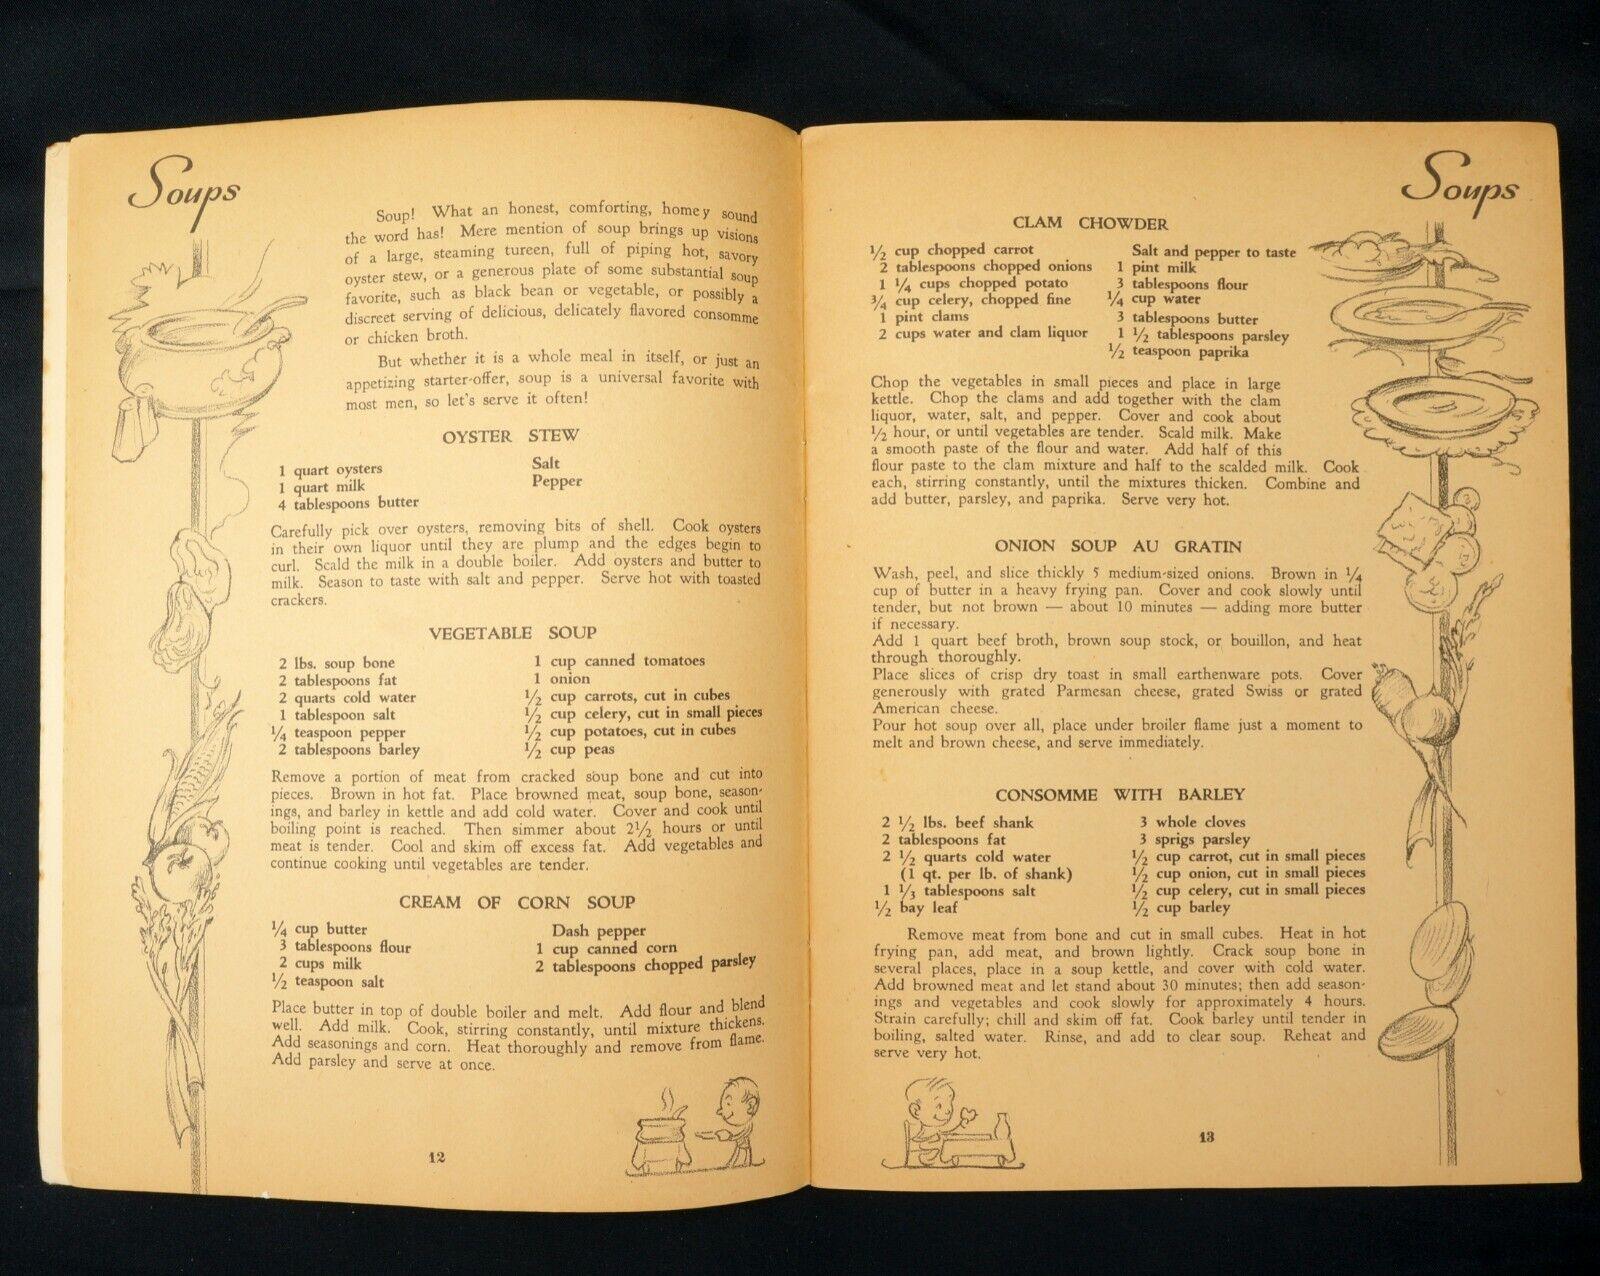 Soups
Soup! What an honest, comforting, homey sound
the word has! Mere mention of soup brings up visions
of a large, steaming tureen, full of piping hot, savory
oyster stew, or a generous plate of some substantial soup
favorite, such as black bean or vegetable, or possibly a
discreet serving of delicious, delicately flavored consomme
or chicken broth.
But whether it is a whole meal in itself, or just an
appetizing starter-offer, soup is a universal favorite with
most men, so let's serve it often!
OYSTER STEW
1 quart oysters
1 quart milk
4 tablespoons butter
Salt
Pepper
Carefully pick over oysters, removing bits of shell. Cook oysters
in their own liquor until they are plump and the edges begin to
curl. Scald the milk in a double boiler. Add oysters and butter to
milk. Season to taste with salt and pepper. Serve hot with toasted
crackers.
VEGETABLE SOUP
2 lbs. soup bone
2 tablespoons fat
2 quarts cold water
1 tablespoon salt
1/4 teaspoon pepper
2 tablespoons barley
1 cup canned tomatoes
1 onion
1/2 cup carrots, cut in cubes
1/2 cup celery, cut in small pieces
1/2 cup potatoes, cut in cubes
1/2 cup peas
Remove a portion of meat from cracked soup bone and cut into
pieces. Brown in hot fat. Place browned meat, soup bone, season-
ings, and barley in kettle and add cold water. Cover and cook until
boiling point is reached. Then simmer about 2 1/2 hours or until
meat is tender. Cool and skim off excess fat. Add vegetables and
continue cooking until vegetables are tender.
CREAM OF CORN SOUP
1/4 cup butter
3 tablespoons flour
2 cups milk
1/2 teaspoon salt
Dash pepper
1 cup canned corn
2 tablespoons chopped parsley
Place butter in top of double boiler and melt. Add flour and blend
well. Add milk. Cook, stirring constantly, until mixture thickens.
Add seasonings and corn. Heat thoroughly and remove from flame.
Add parsley and serve at once.
12
Soups
CLAM CHOWDER
1/2 cup chopped carrot
2 tablespoons chopped onions
1 1/4 cups chopped potato
3/4 cup celery, chopped fine
1 pint clams
2 cups water and clam liquor
Salt and pepper to taste
1 pint milk
3 tablespoons flour
1/4 cup water
3 tablespoons butter
1 1/2 tablespoons parsley
1/2 teaspoon paprika
Chop the vegetables in small pieces and place in large
kettle. Chop the clams and add together with the clam
liquor, water, salt, and pepper. Cover and cook about
1/2 hour, or until vegetables are tender. Scald milk. Make
a smooth paste of the flour and water. Add half of this
flour paste to the clam mixture and half to the scalded milk. Cook
each, stirring constantly, until the mixtures thicken. Combine and
add butter, parsley, and paprika. Serve very hot.
ONION SOUP AU GRATIN
Wash, peel, and slice thickly 5 medium-sized onions. Brown in 1/4
cup of butter in a heavy frying pan. Cover and cook slowly until
tender, but not brown — about 10 minutes — adding more butter
if necessary.
Add 1 quart beef broth, brown soup stock, or bouillon, and heat
through thoroughly.
Place slices of crisp dry toast in small earthenware pots. Cover
generously with grated Parmesan cheese, grated Swiss or grated
American cheese.
Pour hot soup over all, place under broiler flame just a moment to
melt and brown cheese, and serve immediately.
CONSOMME WITH BARLEY
2 1/2 lbs. beef shank
2 tablespoons fat
2 1/2 quarts cold water
(1 qt. per lb. of shank)
1 1/3 tablespoons salt
1/2 bay leaf
3 whole cloves
3 sprigs parsley
1/2 cup carrot, cut in small pieces
1/2 cup onion, cut in small pieces
1/2 cup celery, cut in small pieces
1/2 cup barley
Remove meat from bone and cut in small cubes. Heat in hot
frying pan, add meat, and brown lightly. Crack soup bone in
several places, place in a soup kettle, and cover with cold water.
Add browned meat and let stand about 30 minutes; then add season-
ings and vegetables and cook slowly for approximately 4 hours.
Strain carefully; chill and skim off fat. Cook barley until tender in
boiling, salted water. Rinse, and add to clear soup. Reheat and
serve very hot.
13